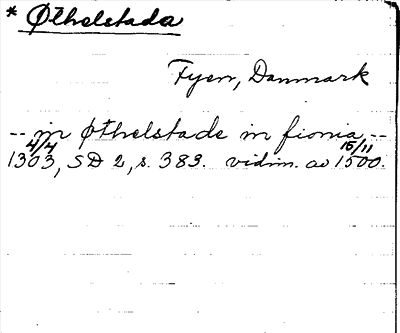 * Øthelstada
Fyen, Danmark
-- in Øthelstade in fionia --
4/4 15/11
1303, SD 2, s. 383. vidim. av 1500.